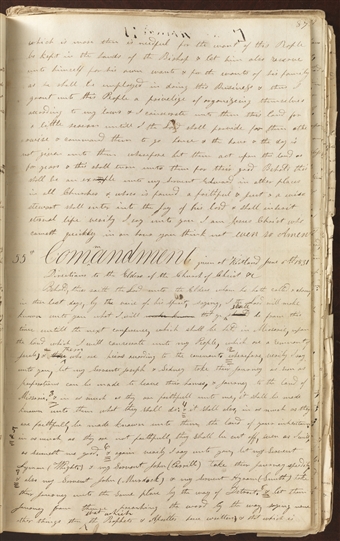 57
which is more then is needful for the want of this People
be kept in the hands of the Bishop & let him also reserve
unto himself for his own wants & for the wants of his family
as he shall be employed in doing this Business & thus I
grant unto this People a privelege of organizeing themselves
according to my laws & I consecrate unto them this land for
a little season untill I the Lord shall provide for them other
& command them to go hence & the hour & the day is
not given unto them wherefore let them act upon this land as
for years & this shall turn unto them for their good Behold this
shall be an example unto my Servent Edward in other places
in all Churches & whoso is found a faithful & just & a wise
steward shall enter into the joy of his Lord & shall inherit
eternal life verily I say unto you I am Jesus Christ who
cometh quickly in an hour you think not even so Amen
Comandment given at Kirtland June 1831
Directions to the Elders of the Church of Christ &c
Behold thus saith the Lord unto the Elders whom he hath called & chosen
in these last days, by the voice of his Spirit, saying, I the Lord will make
known unto you what I will that ye shall do from this
time untill the next conference, which shall be held in Missorie, upon
the land which I will consecrate unto my People, which are a remnant of
Jacob & those who are heirs according to the covenant wherefore, verily I say
unto you, let my Servents Joseph & Sidney take their journey as soon as
preperations can be made to leave their homes, & journey to the Land of
Missorie & in as much as they are faithfull unto me, it shall be made
known unto them what they shall do & it shall also, in as much as they
are faithfully be made known unto them the land of your inheritance &
in as much as they are not faithful, they shall be cut off, even as I will
as seemeth me good & again verily I say unto you, let my Servent
Lyman (Wight) & my Servent John (Corrill) Take their journey speedily
& also my Servent John (Murdock) & my Servent Hyram (Smith) take
their journey unto the same place by the way of Detroit & let them
journey from thence preaching the word by the way saying none
other things than that which the Prophets & Apostles have written & that which is